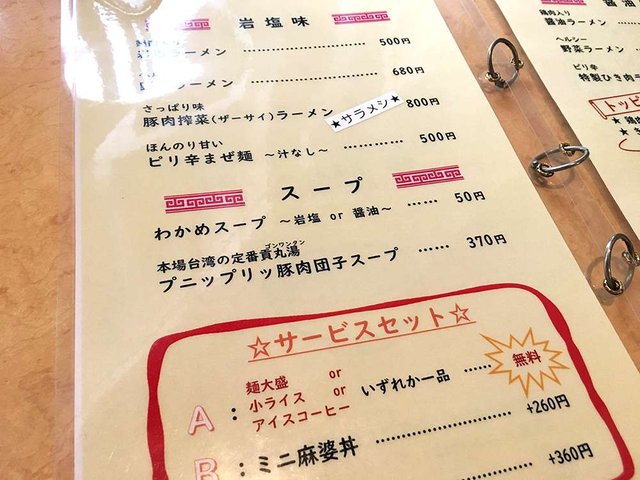 岩塩味
ラーメン ………………… 500円
ラーメン ………………… 680円
さっぱり味
豚肉搾菜(ザーサイ)ラーメン ★サラメシ★ 800円
ほんのり甘い
ピリ辛まぜ麺 ～汁なし～ ………… 500円
スープ
わかめスープ ～岩塩 or 醤油～ …… 50円
ゴンワンタン
本場台湾の定番貢丸湯
プニップリッ豚肉団子スープ …… 370円
☆サービスセット☆
A : 麺大盛 or
小ライス or いずれか一品 …… 無料
アイスコーヒー
+260円
B : ミニ麻婆丼 ………………
+360円
鶏肉入り
醤油ラーメン
ヘルシー
野菜ラーメン
ピリ辛
特製ひき肉
トッピ
★
★